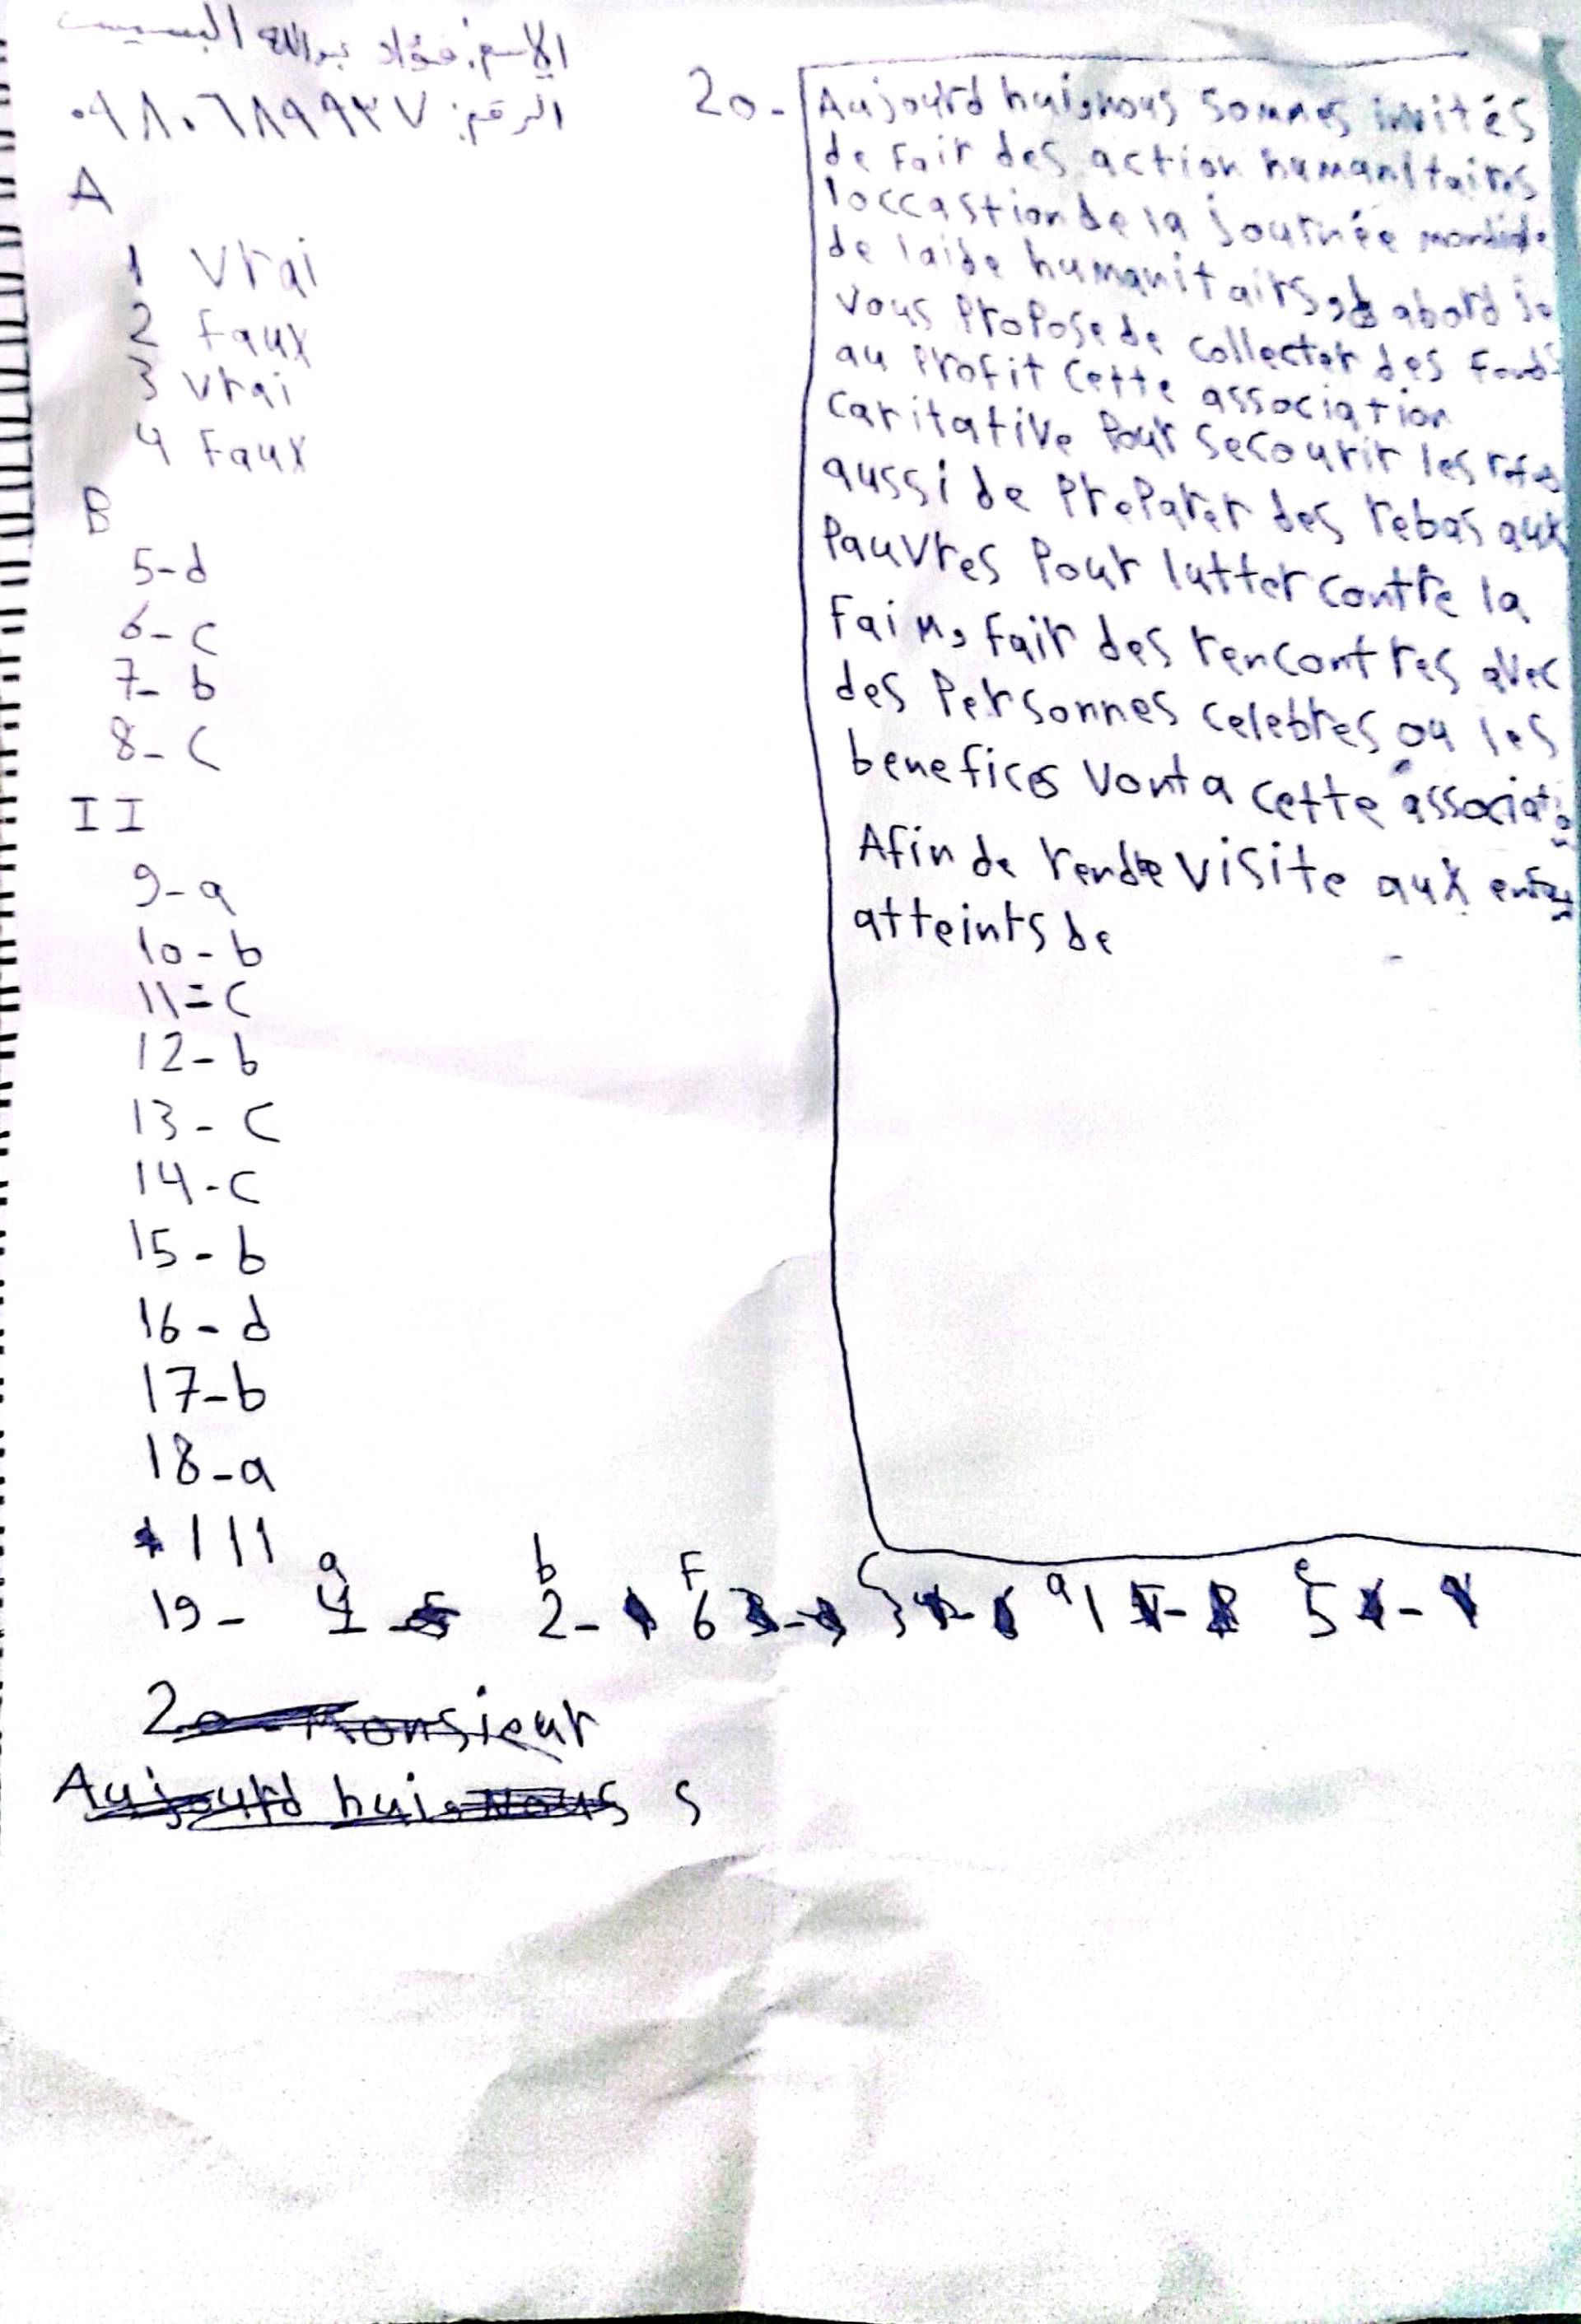 الاسم: فؤاد عبدالله
الرقم: ٠٩٨٠٦٨٩٩٣٧
A
1 Vrai
2 Faux
3 Vrai
4 Faux
B
5-d
6-c
7-b
8-c
II
9-a
10-b
11=c
12-b
13-c
14-c
15-b
16-d
17-b
18-a
111
a b F c a e
19- 4 2- 6 3 1 5
20- Monsieur
Aujourd hui, nous s
20- Aujourd hui, nous sommes invités
de fair des action humanitaires
loccastion de la journée mondiale
de laide humanitairs, d abord je
vous propose de collecter des fonds
au profit cette association
caritative pour secourir les
aussi de preparer des rebas aux
pauvres pour lutter contre la
faim, fair des rencontres avec
des personnes celebres ou les
benefices vont a cette associatio
Afin de rendre visite aux
atteints de